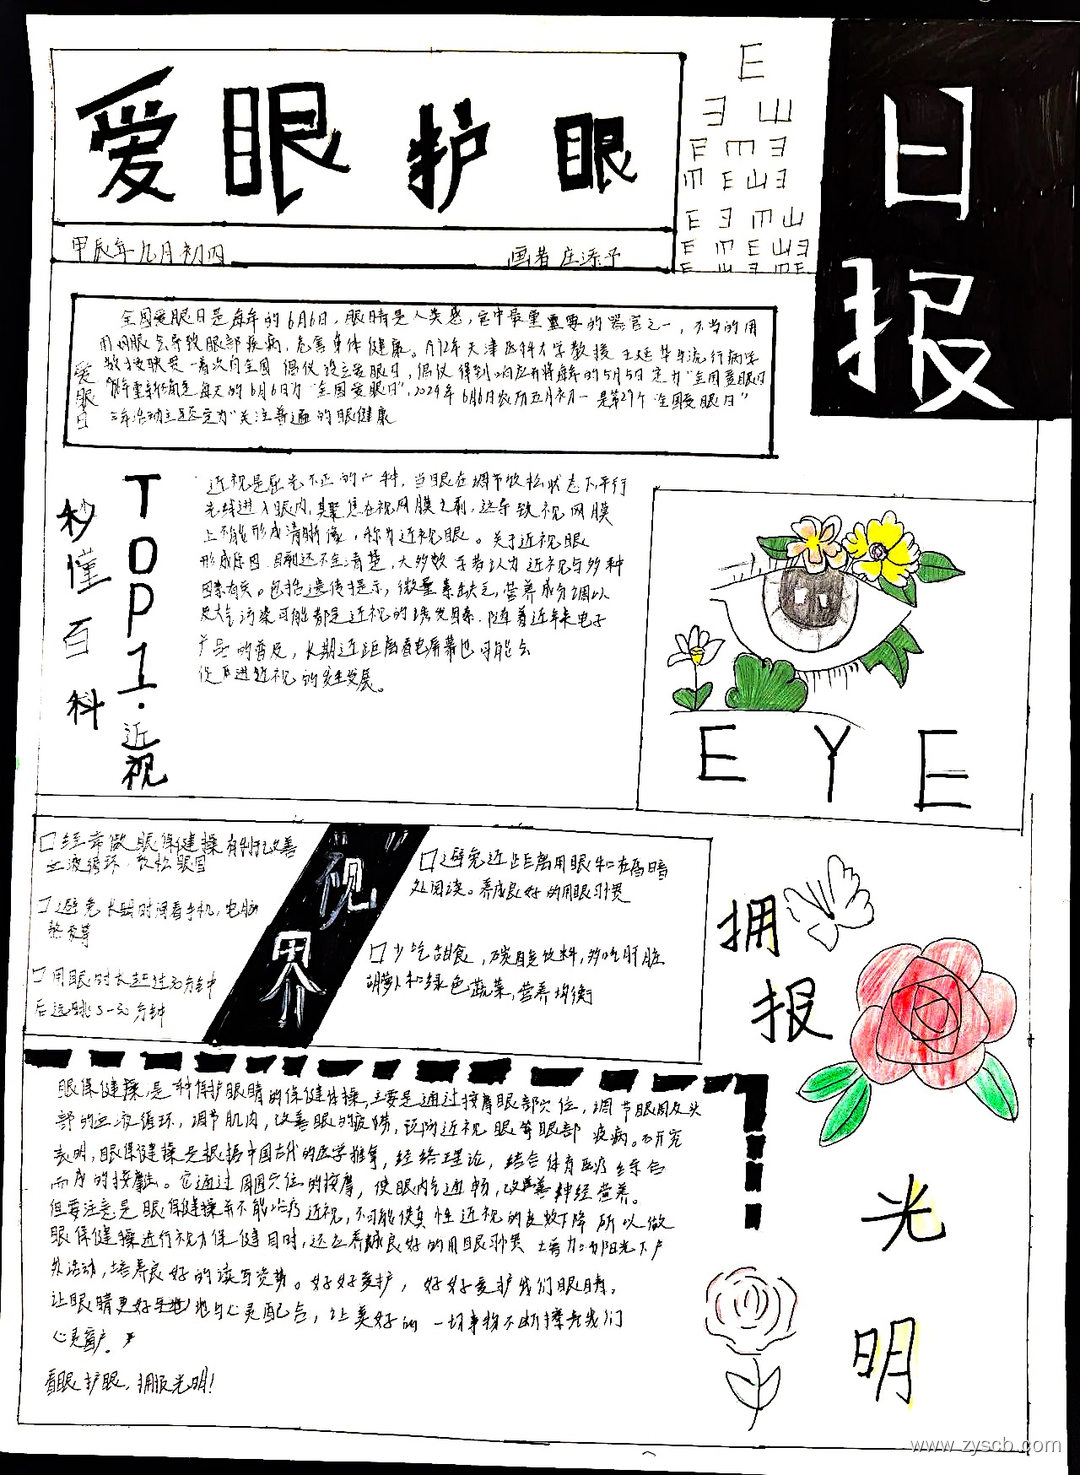 爱眼护眼
日报
E
甲辰年九月初四
画者庄添予
爱眼日
全国爱眼日是每年的6月6日,眼睛是人类感官中最重要的器官之一,不当的用
用网眼会导致眼部疾病,危害身体健康。
2024年6月6日农历五月初一是第29个"全国爱眼日"
"关注普遍的眼健康
秒懂百科
TOP1·近视
近视是屈光不正的一种,当眼在调节放松状态下,平行
光线进入眼内,其聚焦在视网膜之前,这导致视网膜
上不能形成清晰像,称为近视眼。关于近视眼
形成原因目前还不全清楚,大多数学者认为近视与多种
因素有关。包括遗传提示,微量素缺乏,营养成分调以
及大气污染可能都是近视的诱发因素,随着近年来电子
产品的普及,长期近距离看电屏幕也可能会
促进近视的发生发展。
EYE
□经常做眼保健操有利于改善
血液循环,放松眼回
□避免长时间看手机,电脑
□用眼时长超过30分钟
后远眺5-10分钟
视界
□避免近距离用眼和在昏暗
处阅读。养成良好的用眼习惯
□少吃甜食,碳酸饮料,多吃肝脏
胡萝卜和绿色蔬菜,营养均衡
拥报
光明
眼保健操,是一种保护眼睛的保健体操,主要是通过按摩眼部穴位,调节眼周及头
部的血液循环,调节肌肉,改善眼的疲倦,预防近视眼等眼部疾病。研究
表明,眼保健操是根据中国古代的医学推拿,经络理论,结合体育医疗综合
而成的按摩法。它通过周围穴位的按摩,使眼内气通畅,改善神经营养。
但要注意是眼保健操并不能治疗近视,不可能使真性近视的度数下降所以做
眼保健操进行视力保健目时,还应养成良好的用眼习惯
办活动,培养良好的读写姿势。好好爱护,好好爱护我们眼睛,
让眼睛更好地与心灵配合,让美好的一切事物不断擦亮我们
心灵窗户。
看眼护眼,拥报光明!
www.zyscb.com